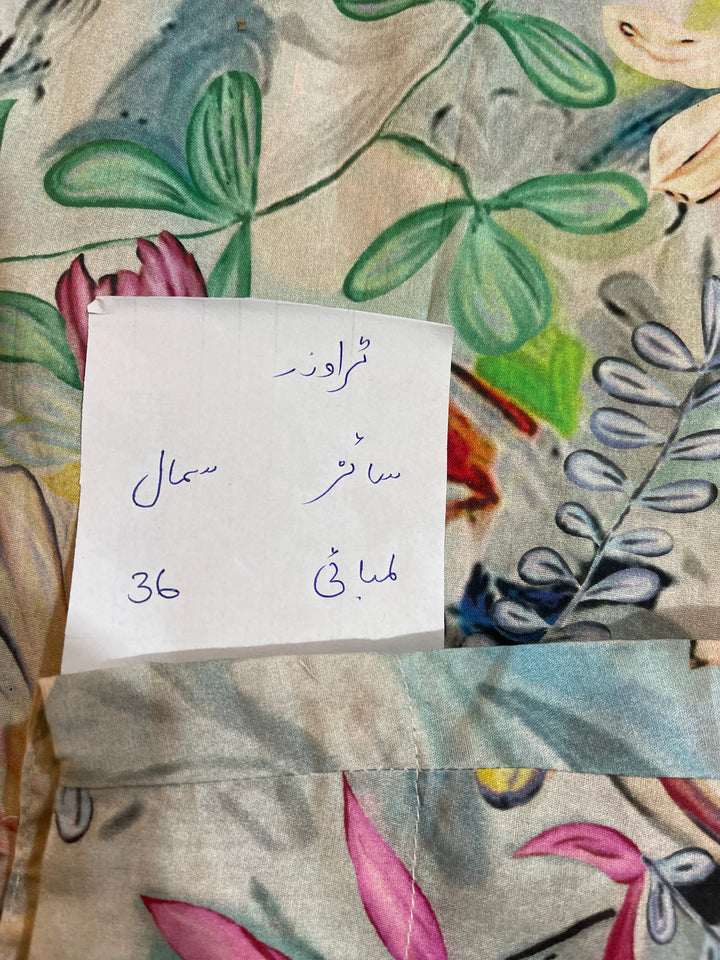 ٹراوزر
سائز سمال
لمبائی 36